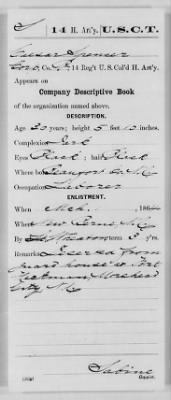 S | 14 H. Art'y. | U.S.C.T.
Spencer
Co. , 14 Reg't U.S. Col'd H. Art'y.
Appears on
Company Descriptive Book
of the organization named above.
DESCRIPTION.
Age 20 years; height 5 feet 10 inches.
Complexion Dark
Eyes Black; hair Black
Where born Beaufort Co. N.C.
Occupation Laborer
ENLISTMENT.
When Mch. , 186
Where New Berne N.C.
By term 3 y'rs.
Remarks: Deserted from
guard house at Fort
Morehead
City N.C.
Sabine
Copyist.